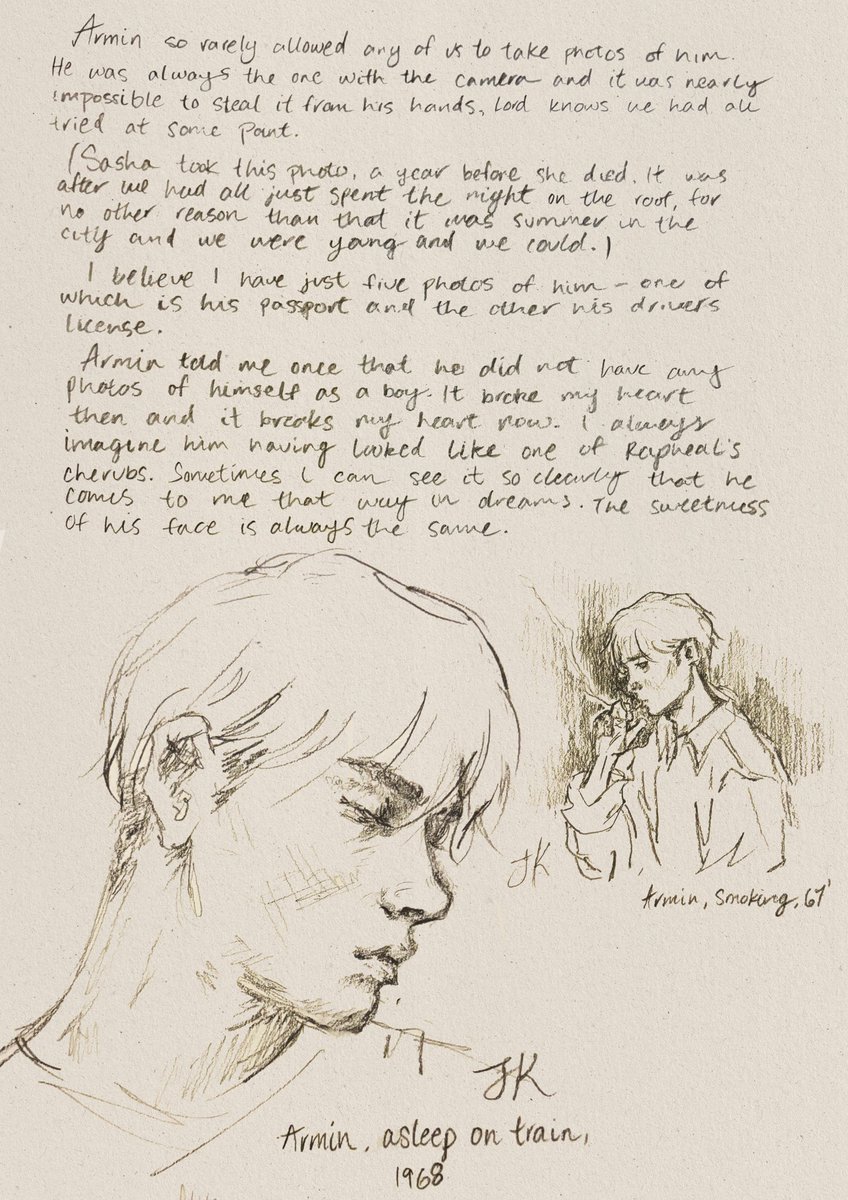 Armin so rarely allowed any of us to take photos of him.
He was always the one with the camera and it was nearly
impossible to steal it from his hands, lord knows we had all
tried at some point.
(Sasha took this photo, a year before she died. It was
after we had all just spent the night on the roof, for
no other reason than that it was summer in the
city and we were young and we could.)
I believe I have just five photos of him - one of
which is his passport and the other his drivers
license.
Armin told me once that he did not have any
photos of himself as a boy. It broke my heart
then and it breaks my heart now. I always
imagine him having looked like one of Rapheal's
cherubs. Sometimes I can see it so clearly that he
comes to me that way in dreams. The sweetness
of his face is always the same.
JK
Armin, smoking, 67'
JK
Armin, asleep on train,
1968